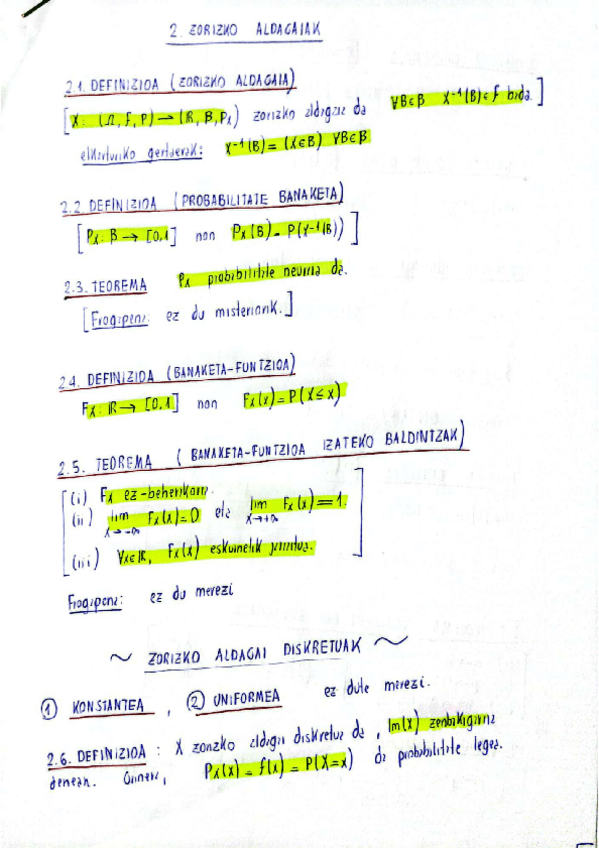 2. ZORIZKO ALDAGAIAK
2.1. DEFINIZIOA (ZORIZKO ALDAGAIA)
[X: (Ω, F, P) → (R, B, Px) zorizko aldagaia da ∀B∈β X⁻¹(B)∈F bada.]
elkarturiko gertaerak: X⁻¹(B) = (X∈B) ∀B∈β
2.2 DEFINIZIOA (PROBABILITATE BANAKETA)
[Px: β → [0,1] non Px(B) = P(X⁻¹(B))]
2.3. TEOREMA Px probabilitate neurria da.
[Frogapena: ez du misteriorik.]
2.4. DEFINIZIOA (BANAKETA-FUNTZIOA)
Fx: R → [0,1] non Fx(x) = P(X ≤ x)
2.5. TEOREMA (BANAKETA-FUNTZIOA IZATEKO BALDINTZAK)
(i) Fx ez-beherakorra.
(ii) lim x→-∞ Fx(x) = 0 eta lim x→+∞ Fx(x) = 1.
(iii) ∀x∈R, Fx(x) eskuinetik jarraitua.
Frogapena: ez du merezi
~ ZORIZKO ALDAGAI DISKRETUAK ~
① KONSTANTEA, ② UNIFORMEA ez dute merezi.
2.6. DEFINIZIOA: X zorizko aldagai diskretua da, Im(x) zenbakigarria
denean. Gainera, Px(x) = f(x) = P(X=x) da probabilitate legea.